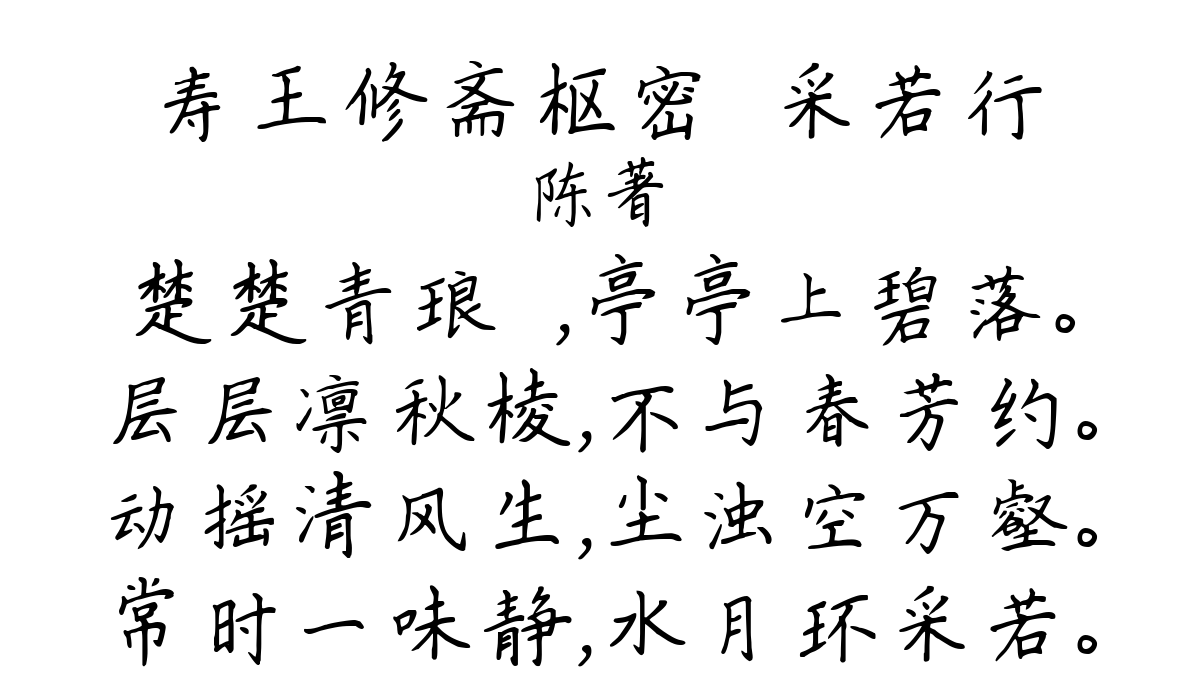 寿王修斋枢密 采若行
陈著
楚楚青琅 ,亭亭上碧落。
层层凛秋棱,不与春芳约。
动摇清风生,尘浊空万壑。
常时一味静,水月环采若。